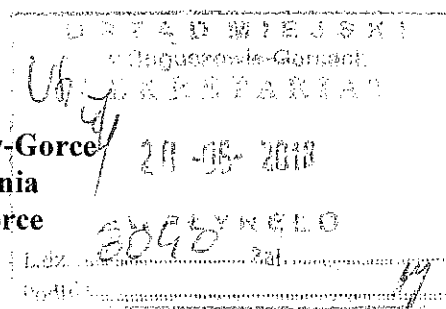 URZĄD MIEJSKI
w Boguszowie-Gorcach
SEKRETARIAT
y-Gorce
20 -05- 2010
nia
rce
WPŁYNĘŁO
L.dz. 3040 Zał.
Podpis